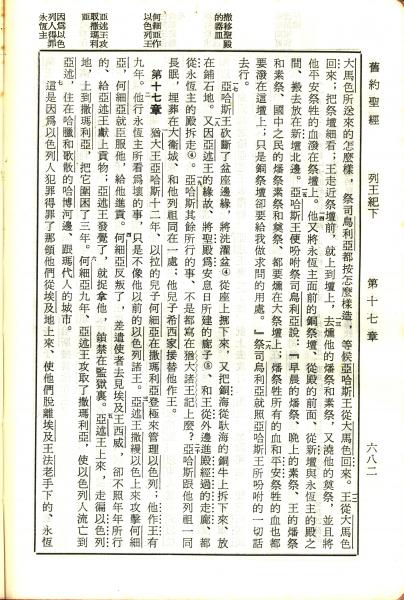 舊約聖經　列王紀下　第十七章　六八二
大馬色所送來的怎麼樣，祭司烏利亞都按怎麼樣造，等候亞哈斯王從大馬色回來。王從大馬色
回來；把祭壇細看；王走近祭壇前，就上到壇上，去燔他的燔祭和素祭，又澆他的奠祭，並且將
他平安祭牲的血潑在祭壇上。他又將永恆主面前的銅祭壇、從殿的前面、從新壇與永恆主的殿之
間、搬去放在新壇北邊。亞哈斯王便吩咐祭司烏利亞說：『早晨的燔祭、晚上的素祭、王的燔祭
和素祭、國中之民的燔祭素祭和奠祭、都要燔在大祭壇上；燔祭牲所有的血和平安祭牲的血也都
要潑在這壇上；只是銅祭壇卻要給我做求問的用處。』祭司烏利亞就照亞哈斯王所吩咐的一切話
去行。
撤移聖殿的器皿
亞哈斯王砍斷了盆座邊緣，將洗濯盆④從座上搬下來，又把銅海從馱海的銅牛上拆下來、放
在鋪石地。又因亞述王的緣故、將聖殿爲安息日所建的廊子⑤、和王從外邊進殿經過的走廊、都
從永恆主的殿拆走④。亞哈斯其餘所行的事、不是都寫在猶大諸王記上麼？亞哈斯跟他列祖一同
長眠，埋葬在大衛城、和他列祖同在一處；他兒子希西家接替他作王。
何細亞作以色列王
第十七章　猶大王亞哈斯十二年、以拉的兒子何細亞在撒瑪利亞登極來管理以色列；他作王有
九年。他行永恆主所看爲壞的事，只是不像他以前的以色列諸王。亞述王撒縵以色上來攻擊何細
亞，何細亞就臣服他，給他進貢。何細亞反叛了，差遣使者去見埃及王西威，卻不照年年所行
的、給亞述王獻上貢物，亞述王發覺了，就捉拿他，鎖禁在監獄裏。亞述王上來，走遍以色列
亞述王攻取撒瑪利亞
地，上到撒瑪利亞，把它圍困了三年。何細亞九年、亞述王攻取了撒瑪利亞，使以色列人流亡到
亞述，住在哈臘和歌散的哈博河邊、跟瑪代人的城市。
因爲以色列人得罪永恆主
這是因爲以色列人犯罪得罪了那領他們從埃及地上來、使他們脫離埃及王法老手下的、永恆